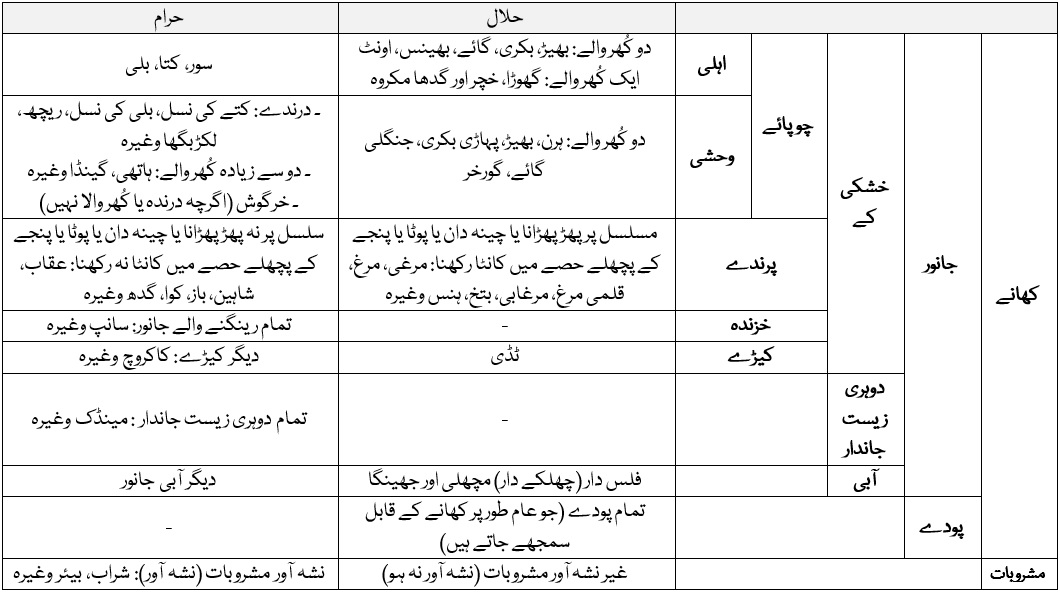 حلال
حرام
کھانے
جانور
خشکی
کے
چوپائے
اہلی
دو کُھر والے: بھیڑ، بکری، گائے، بھینس، اونٹ
ایک کُھر والے: گھوڑا، خچر اور گدھا مکروہ
سور، کتا، بلی
وحشی
دو کُھر والے: ہرن، بھیڑ، پہاڑی بکری، جنگلی
گائے، گورخر
۔ درندے: کتے کی نسل، بلی کی نسل، ریچھ،
لکڑبگھا وغیرہ
۔ دو سے زیادہ کُھر والے: ہاتھی، گینڈا وغیرہ
۔ خرگوش (اگرچہ درندہ یا کُھر والا نہیں)
پرندے
مسلسل پر پھڑپھڑانا یا چینہ دان یا پوٹا یا پنجے
کے پچھلے حصے میں کانٹا رکھنا: مرغی، مرغ،
قلمی مرغ، مرغابی، بتخ، ہنس وغیرہ
سلسل پر نہ پھڑپھڑانا یا چینہ دان یا پوٹا یا پنجے
کے پچھلے حصے میں کانٹا نہ رکھنا: عقاب،
شاہین، باز، کوا، گدھ وغیرہ
خزندہ
-
تمام رینگنے والے جانور: سانپ وغیرہ
کیڑے
ٹڈی
دیگر کیڑے: کاکروچ وغیرہ
دوہری
زیست
جاندار
-
تمام دوہری زیست جاندار : مینڈک وغیرہ
آبی
فلس دار (چھلکے دار) مچھلی اور جھینگا
دیگر آبی جانور
پودے
تمام پودے (جو عام طور پر کھانے کے قابل
سمجھے جاتے ہیں)
-
مشروبات
غیر نشہ آور مشروبات (نشہ آور نہ ہو)
نشہ آور مشروبات (نشہ آور): شراب، بیئر وغیرہ